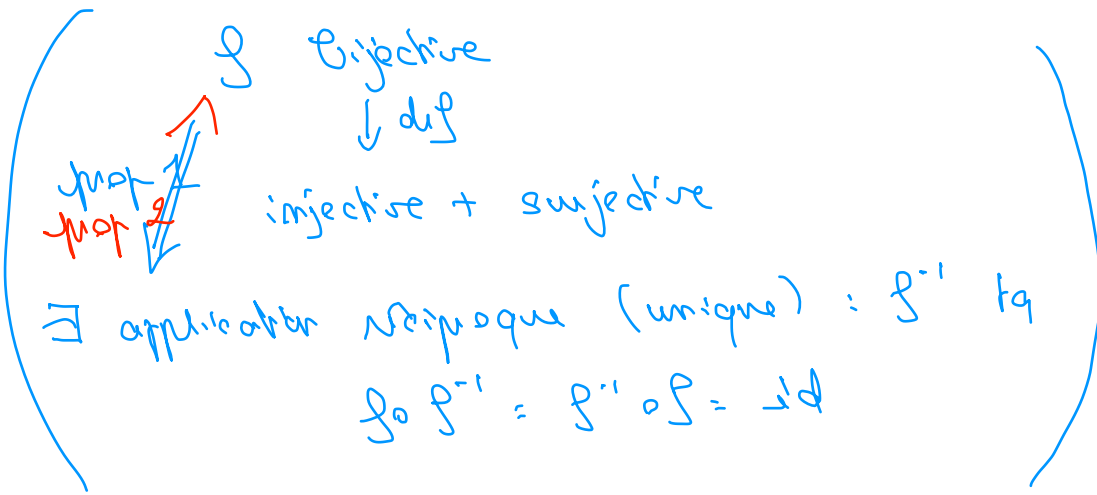 f bijective
↓ def
prop 1
prop 2
injective + surjective
∃ application réciproque (unique) : f⁻¹ tq
f∘f⁻¹ = f⁻¹∘f = id